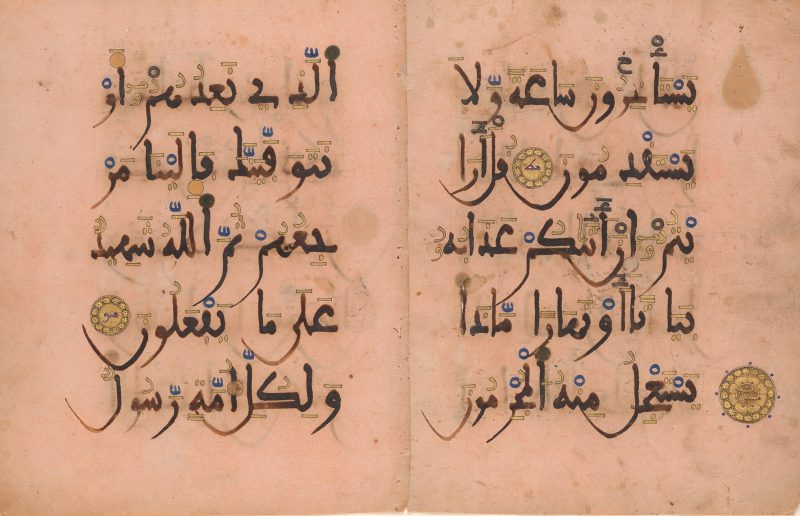 يستأخرون ساعة ولا
يستقدمون قل أرا
يتم إن أتيكم عذابه
بياتا أو نهارا ماذا
يستعجل منه المجرمون
الذي نعدهم أو
نتوفينك فإلينا مر
جعهم ثم الله شهيد
على ما يفعلون مو
ولكل أمة رسول